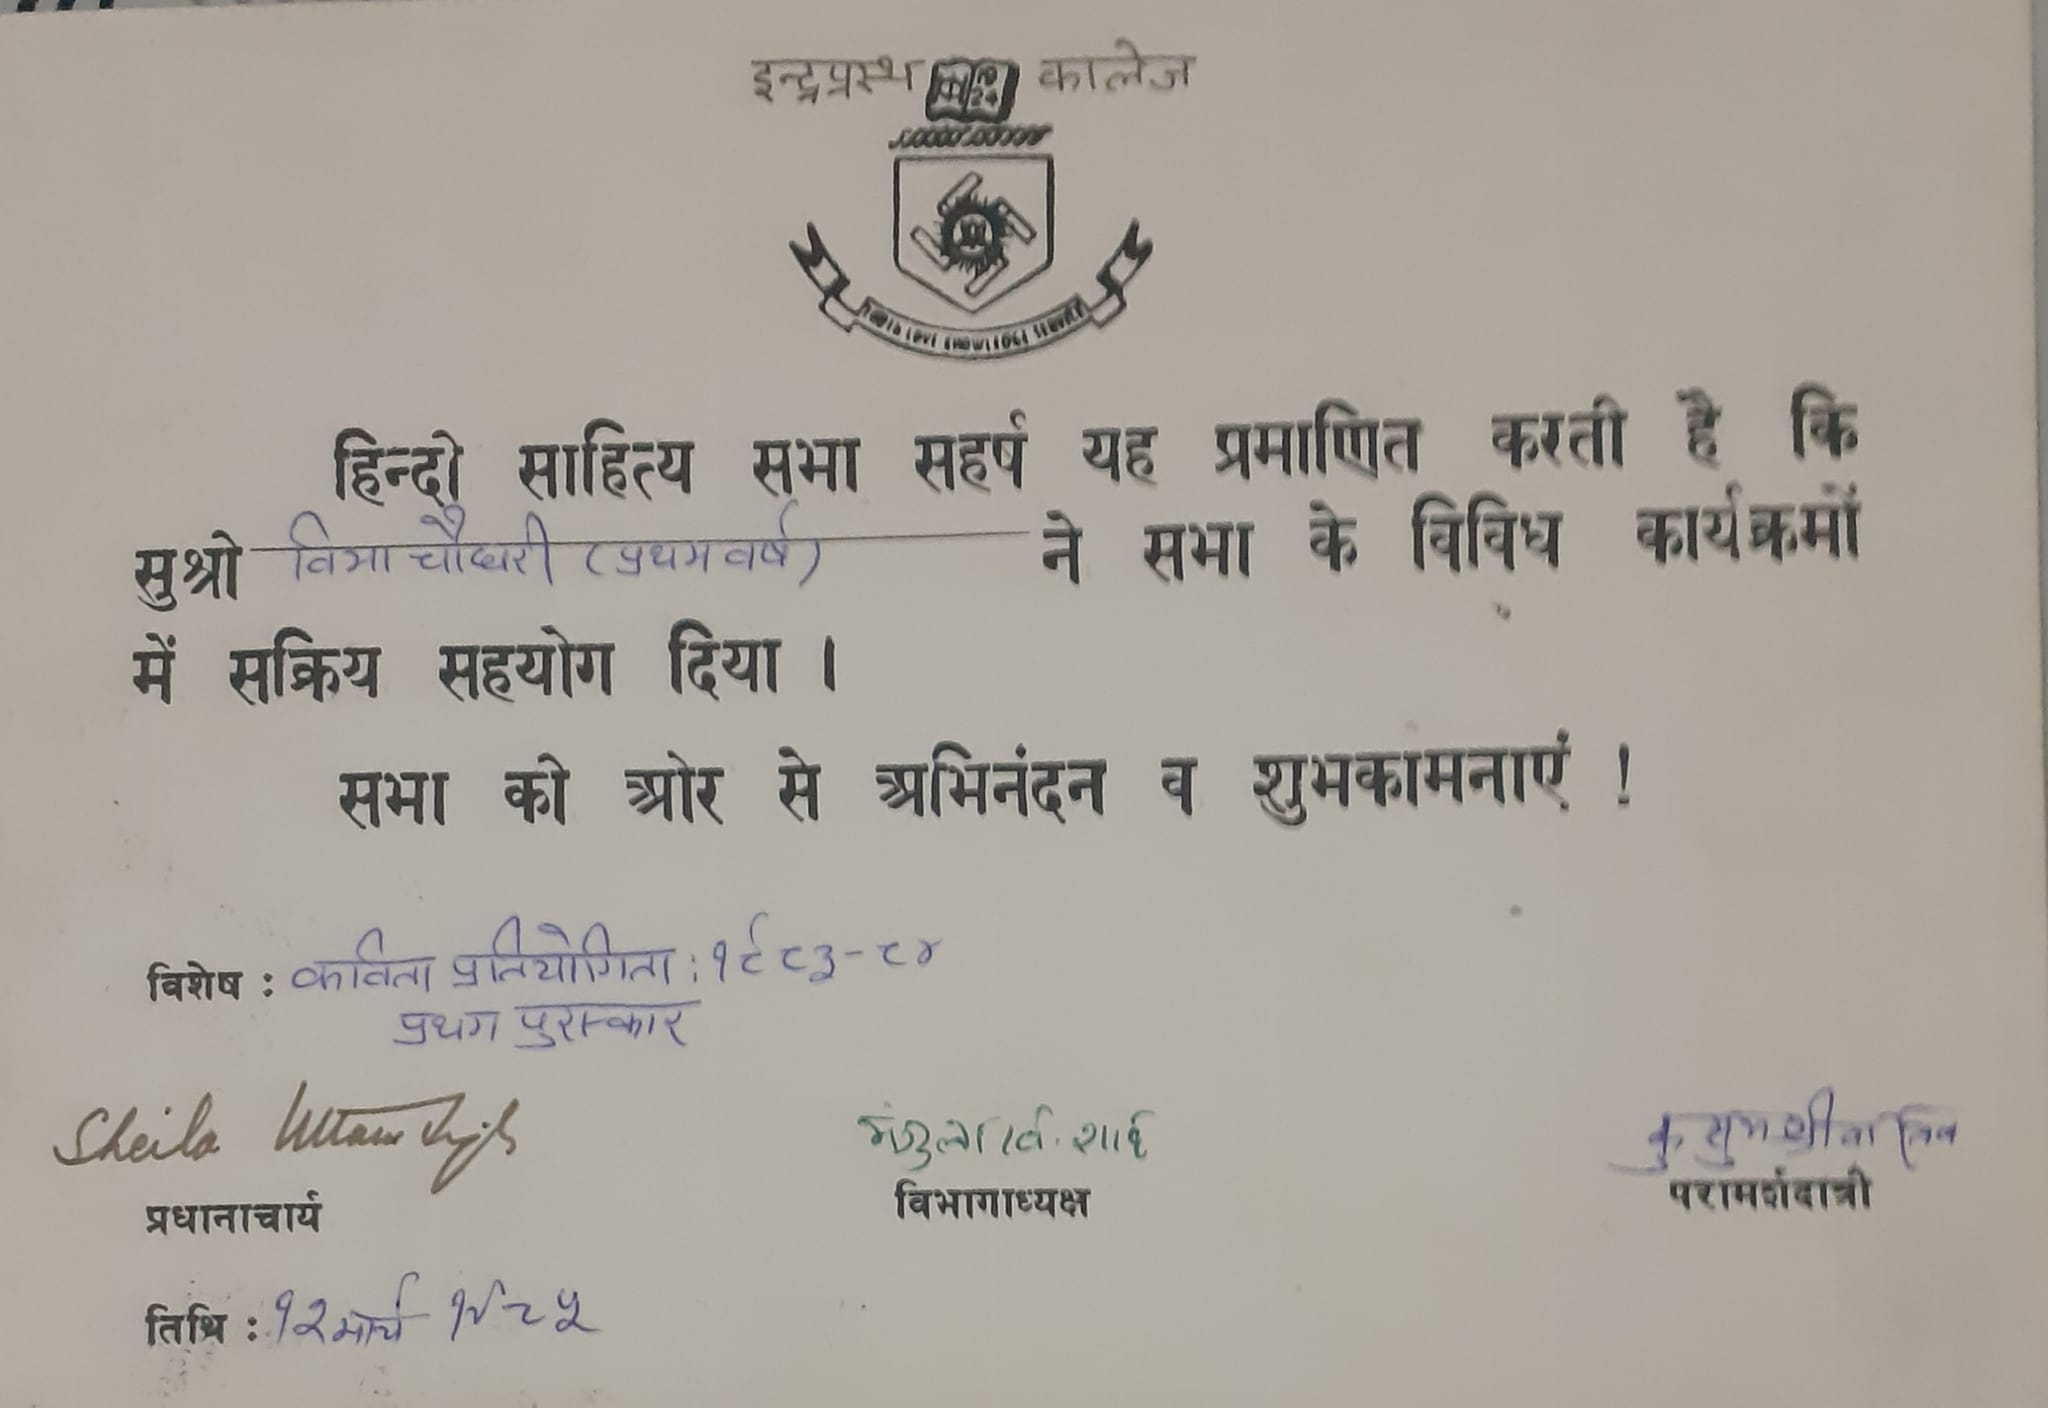 इन्द्रप्रस्थ कालेज
19 24
LOVE KNOWLEDGE SERVICE
हिन्दी साहित्य सभा सहर्ष यह प्रमाणित करती है कि
सुश्री विभा चौधरी (प्रथम वर्ष) ने सभा के विविध कार्यक्रमों
में सक्रिय सहयोग दिया ।
सभा की ओर से अभिनंदन व शुभकामनाएं !
विशेष : कविता प्रतियोगिता : १९८३-८४
प्रथम पुरस्कार
Sheila
प्रधानाचार्य विभागाध्यक्ष परामर्शदात्री
तिथि : १२ मार्च १९८५